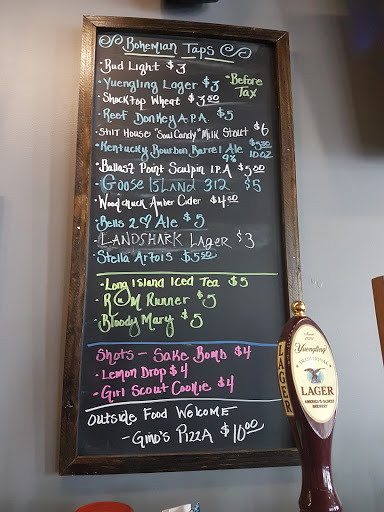 Bohemian Taps
· Bud Light $3
· Yuengling Lager $3
· Before Tax
· Shock top Wheat $3.50
· Reef Donkey A.P.A. $5
· Stilt House "Soul Candy" Milk Stout $6
· Kentucky Bourbon Barrel Ale $5.50
9% 10oz
· Ballast Point Sculpin I.P.A $5.00
· Goose Island 312 $5
· Woodchuck Amber Cider $4.50
· Bells 2 ♡ Ale $5
· LANDSHARK Lager $3
· Stella Artois $5.50
· Long Island Iced Tea $5
· Rum Runner $5
· Bloody Mary $5
Shots - Sake Bomb $4
· Lemon Drop $4
· Girl Scout Cookie $4
Outside Food Welcome -
- Gino's Pizza $10.00
LAGER
Yuengling
TRADITIONAL
LAGER
AMERICA'S OLDEST
BREWERY